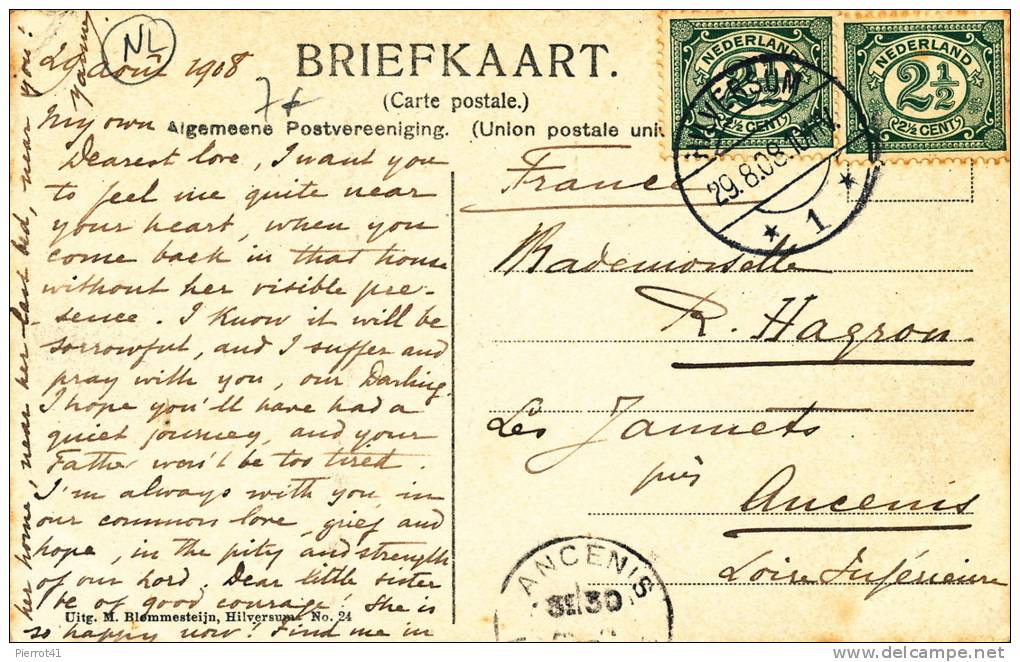 NL
29 août 1908
BRIEFKAART.
(Carte postale.)
Algemeene Postvereeniging. (Union postale uni
My own
Dearest love, I want you
to feel me quite near
your heart, when you
come back in that house
without her visible pre-
-sence. I know it will be
sorrowful, and I suffer and
pray with you, our Darling.
I hope you'll have had a
quiet journey, and your
Father won't be too tired.
I'm always with you in
our common love, grief and
hope, in the pity and strength
of our Lord. Dear little sister
be of good courage! She is
so happy now! Find me in
her home, near her last bed, near you!
Uitg. M. Blommesteijn, Hilversum. No. 24
NEDERLAND
2½
2½ CENT
NEDERLAND
2½
2½ CENT
HILVERSUM
29.8.08.
* 1 *
France
Mademoiselle
R. Hagron
Les Jannets
près
Ancenis
Loire Inférieure
ANCENIS
30
Pierrot41
delcampe.net